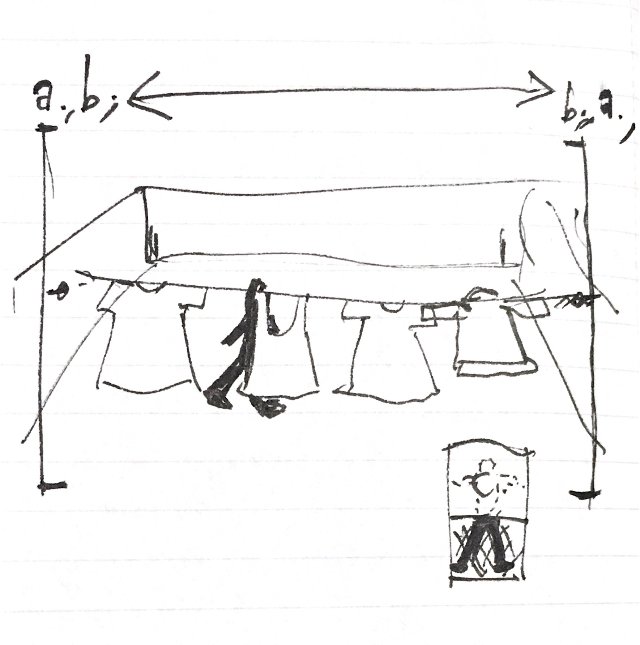 a., b; b; a.,